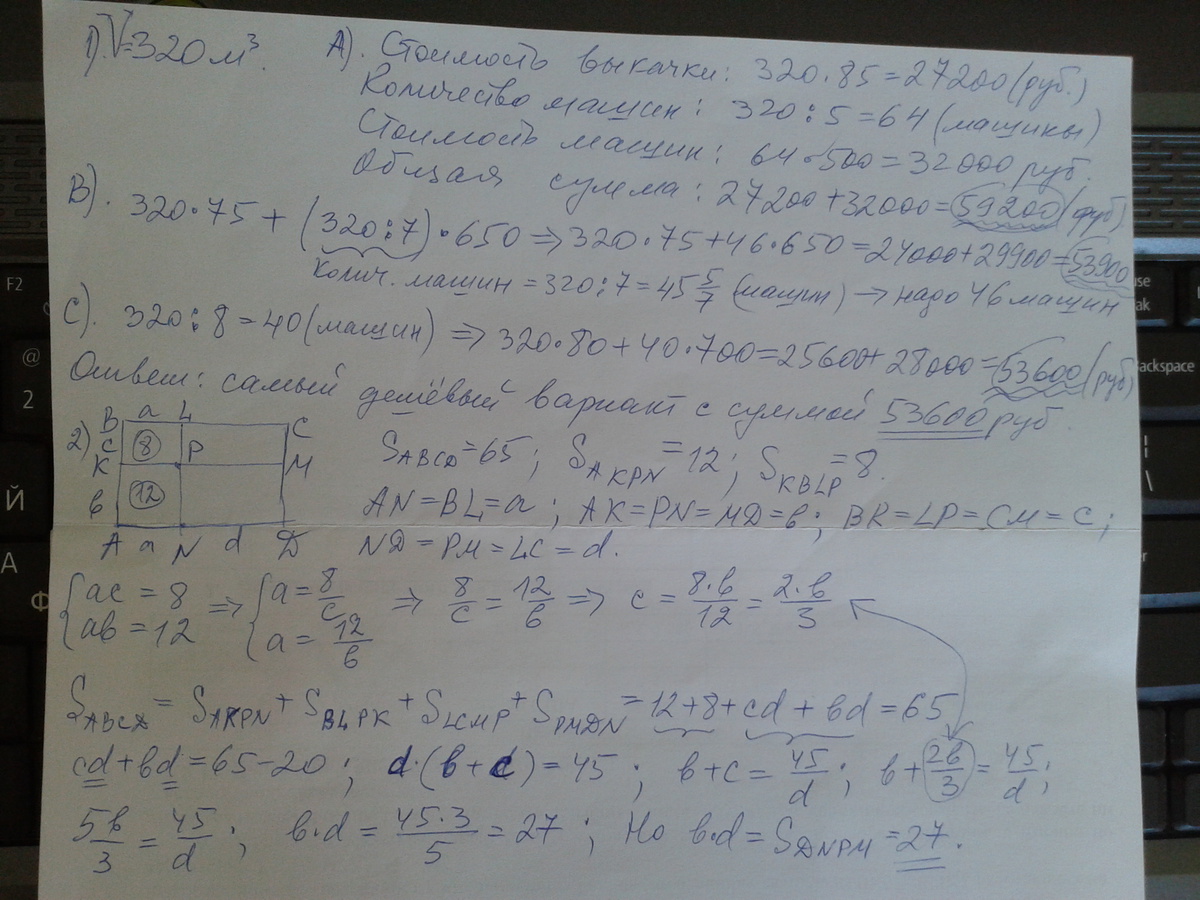 1). V=320 м³.
А). Стоимость выкачки: 320·85=27200 (руб.)
Количество машин: 320:5=64 (машины)
Стоимость машин: 64·500=32000 руб.
Общая сумма: 27200+32000=59200 (руб)
В). 320·75+(320:7)·650⇒320·75+46·650=24000+29900=53900
Колич. машин=320:7=45 5/7 (машин)→надо 46 машин
С). 320:8=40 (машин) ⇒ 320·80+40·700=25600+28000=53600 (руб)
Ответ: самый дешёвый вариант с суммой 53600 руб.
2)
B a L C
c 8 P
K M
в 12
A a N d D
S ABCD=65; S AKPN=12; S KBLP=8.
AN=BL=a; AK=PN=MD=в; BK=LP=CM=c;
ND=PM=LC=d.
{ac=8 ав=12 ⇒ {a=8/c a=12/в ⇒ 8/c=12/в ⇒ c=8·в/12=2·в/3
S ABCD=S AKPN+S BLPK+S LCMP+S PMDN=12+8+cd+вd=65
cd+вd=65-20; d·(в+c)=45; в+c=45/d; в+2в/3=45/d;
5в/3=45/d; в·d=45·3/5=27; Но в·d=S DNPM=27.
F2
@
2
Й
А
Ф
ackspace